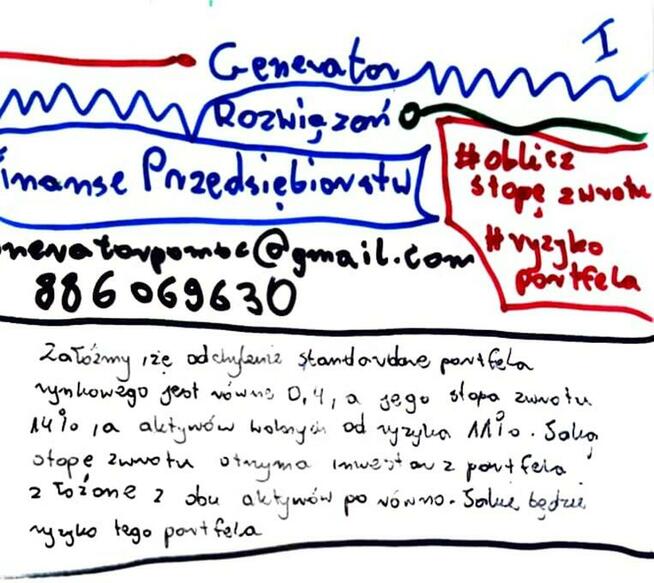 I
Generator
Rozwiązań
inanse Przedsiębiorstw
#oblicz
stopę zwrotu
#ryzyko
portfela
neratorpomoc@gmail.com
886 069630
Załóżmy, że odchylenie standardowe portfela
rynkowego jest równe 0,4, a jego stopa zwrotu
14%, a aktywów wolnych od ryzyka 11%. Jaką
stopę zwrotu otrzyma inwestor z portfela
złożone z obu aktywów po równo. Jakie będzie
ryzyko tego portfela